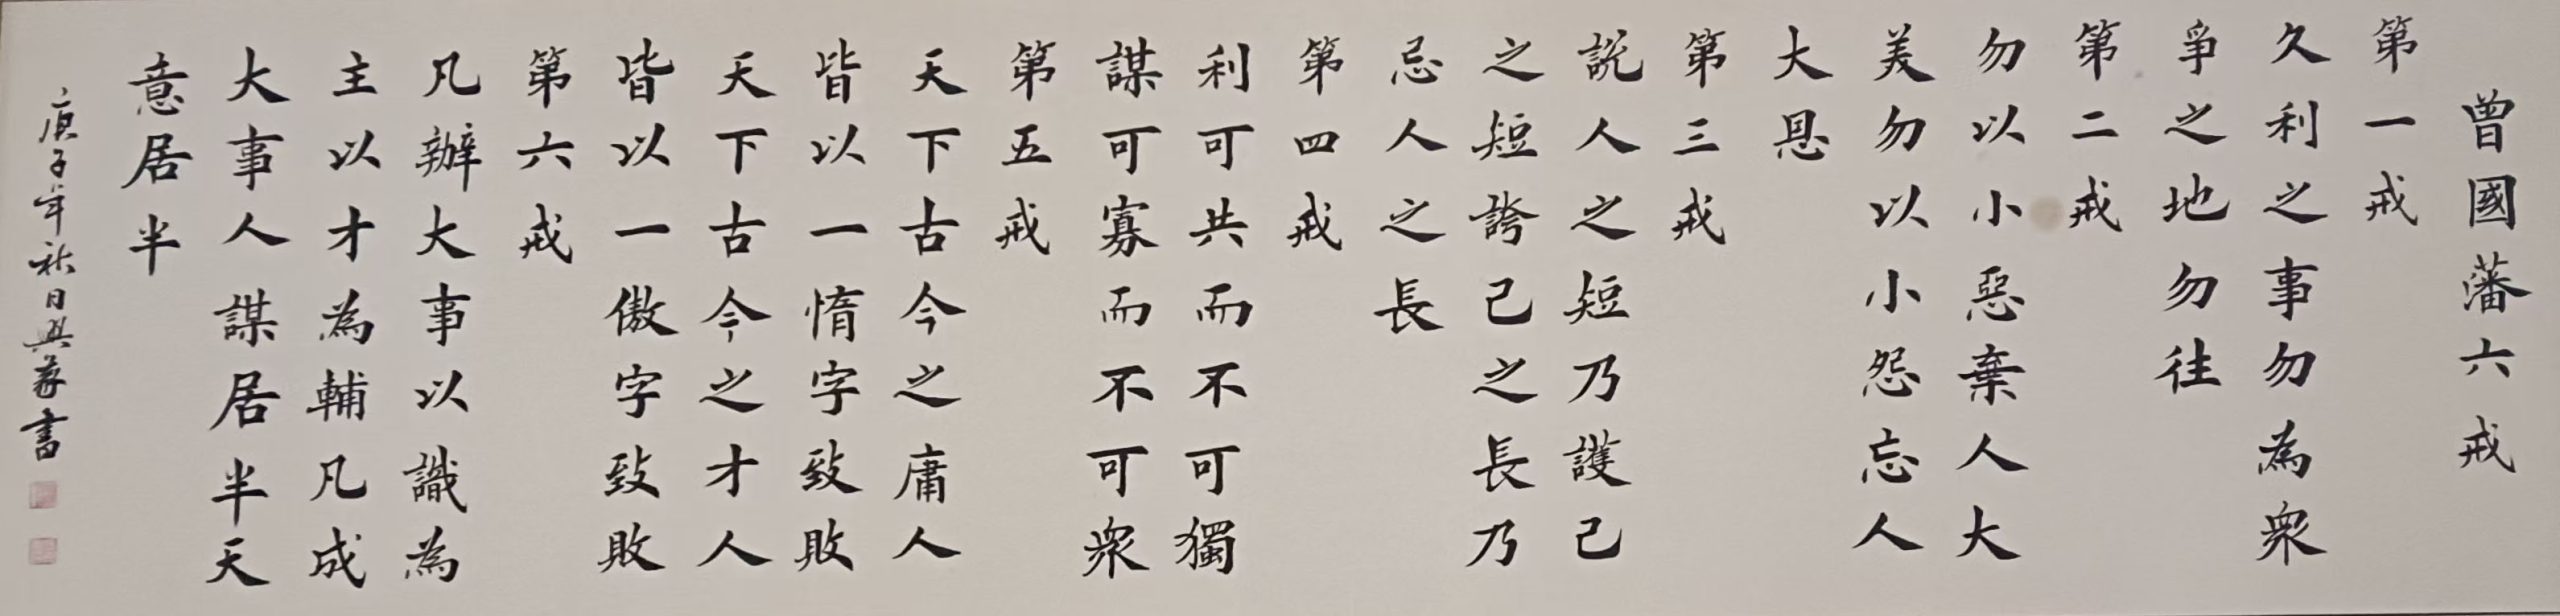 曾國藩六戒
第一戒
久利之事勿為眾
爭之地勿往
第二戒
勿以小惡棄人大
美勿以小怨忘人
大恩
第三戒
説人之短乃護己
之短誇己之長乃
忌人之長
第四戒
利可共而不可獨
謀可寡而不可眾
第五戒
天下古今之庸人
皆以一惰字致敗
天下古今之才人
皆以一傲字致敗
第六戒
凡辦大事以識為
主以才為輔凡成
大事人謀居半天
意居半
庚子年秋日興義書